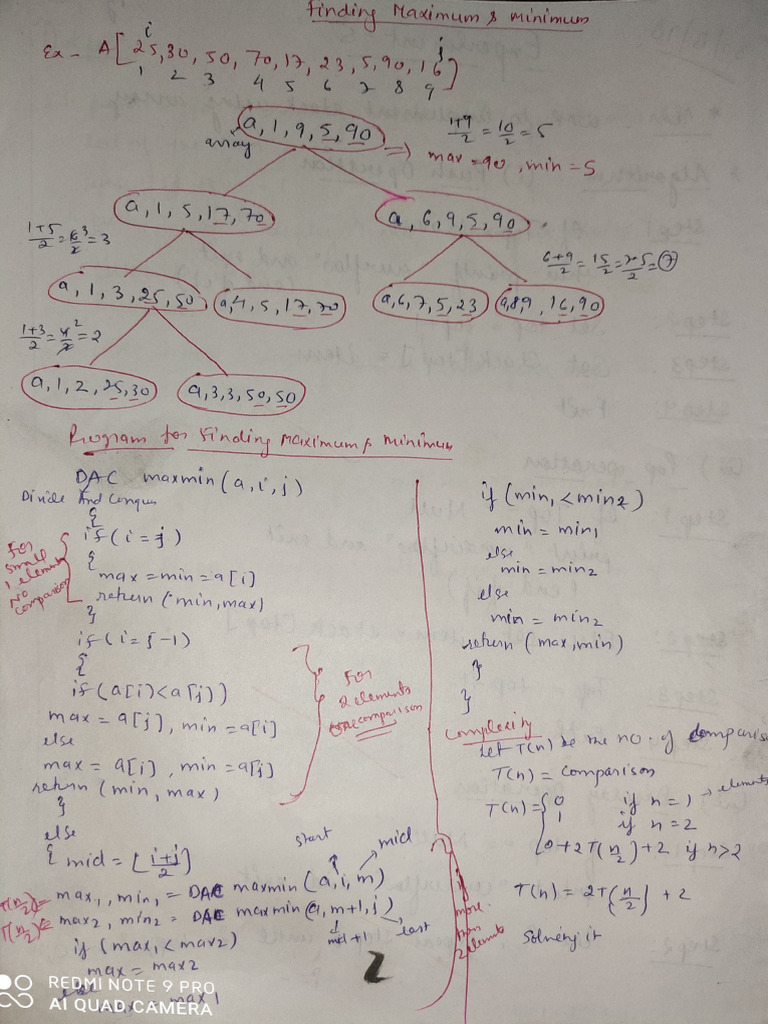 Finding Maximum & Minimum
i j
Ex - A[25,30, 50, 70,17, 23,5,90,16]
1 2 3 4 5 6 7 8 9
a, 1, 9, 5, 90
array
1+9/2 = 10/2 = 5
=> max = 90, min = 5
a, 1, 5, 17, 70
a, 6, 9, 5, 90
1+5/2 = 6/2 3 = 3
6+9/2 = 15/2 = 7.5/2 = 7
a, 1, 3, 25, 50
a, 4, 5, 17, 70
a, 6, 7, 5, 23
a,8,9, 16, 90
1+3/2 = 4/2 2 = 2
a, 1, 2, 25, 30
a, 3, 3, 50, 50
Program for Finding Maximum & Minimum
DAC maxmin (a, i, j)
Divide And Conquer
{
if (i = j)
{
max = min = a[i]
return (min, max)
}
For small 1 elements no comparison
if (i = j -1)
{
if (a[i] < a[j])
max = a[j], min = a[i]
else
max = a[i], min = a[j]
return (min, max)
}
For 2 elements one comparison
else
{ mid = [i+j/2]
start mid
T(n/2) = max1, min1 = DAC maxmin (a, i, m)
T(n/2) = max2, min2 = DAC maxmin (a, m+1, j)
mid+1 last
if (max1 < max2)
max = max2
else
max = max1
if more than 2 elements
if (min1 < min2)
min = min1
else
min = min2
else
min = min2
return (max, min)
}
}
Complexity
Let T(n) be the no. of comparison
T(n) = comparison
T(n) = { 0 if n = 1 → elements
1 if n = 2
0 + 2T(n/2) + 2 if n>2
T(n) = 2T(n/2) + 2
Solving it
2
REDMI NOTE 9 PRO
AI QUAD CAMERA